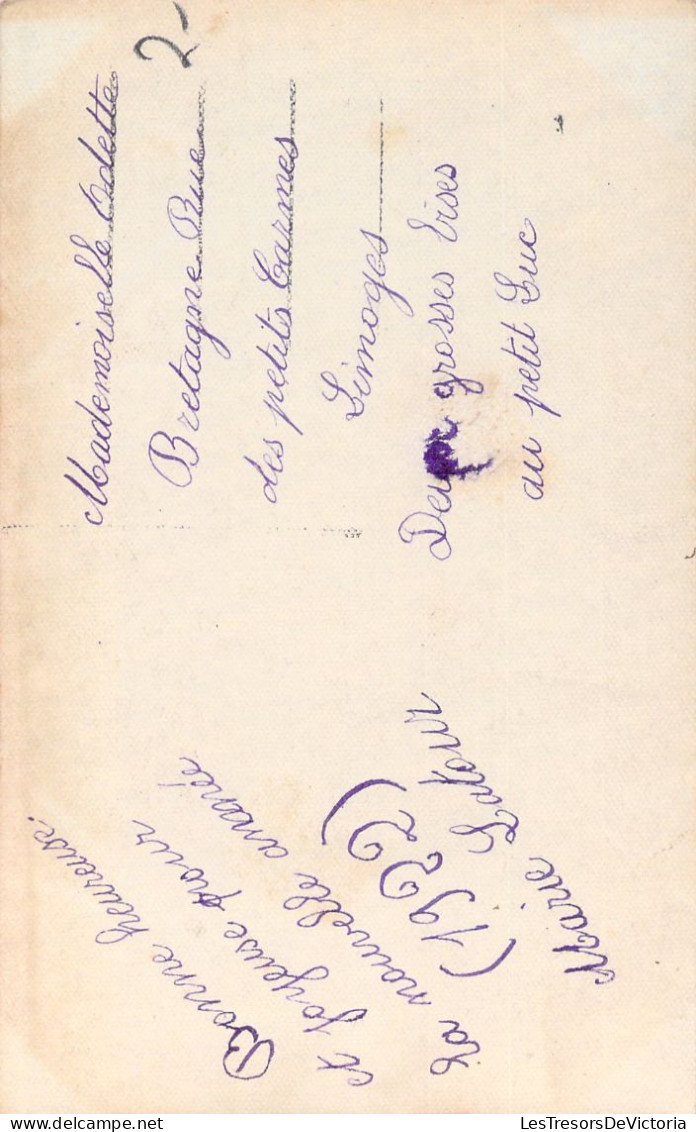 Bonne heureuse
et joyeuse pour
la nouvelle année
(1922)
Marie Latour
2-
Mademoiselle Odette
Bretagne Rue
des petits Carmes
Limoges
Deux grosses bises
au petit Luc
LesTresorsDeVictoria